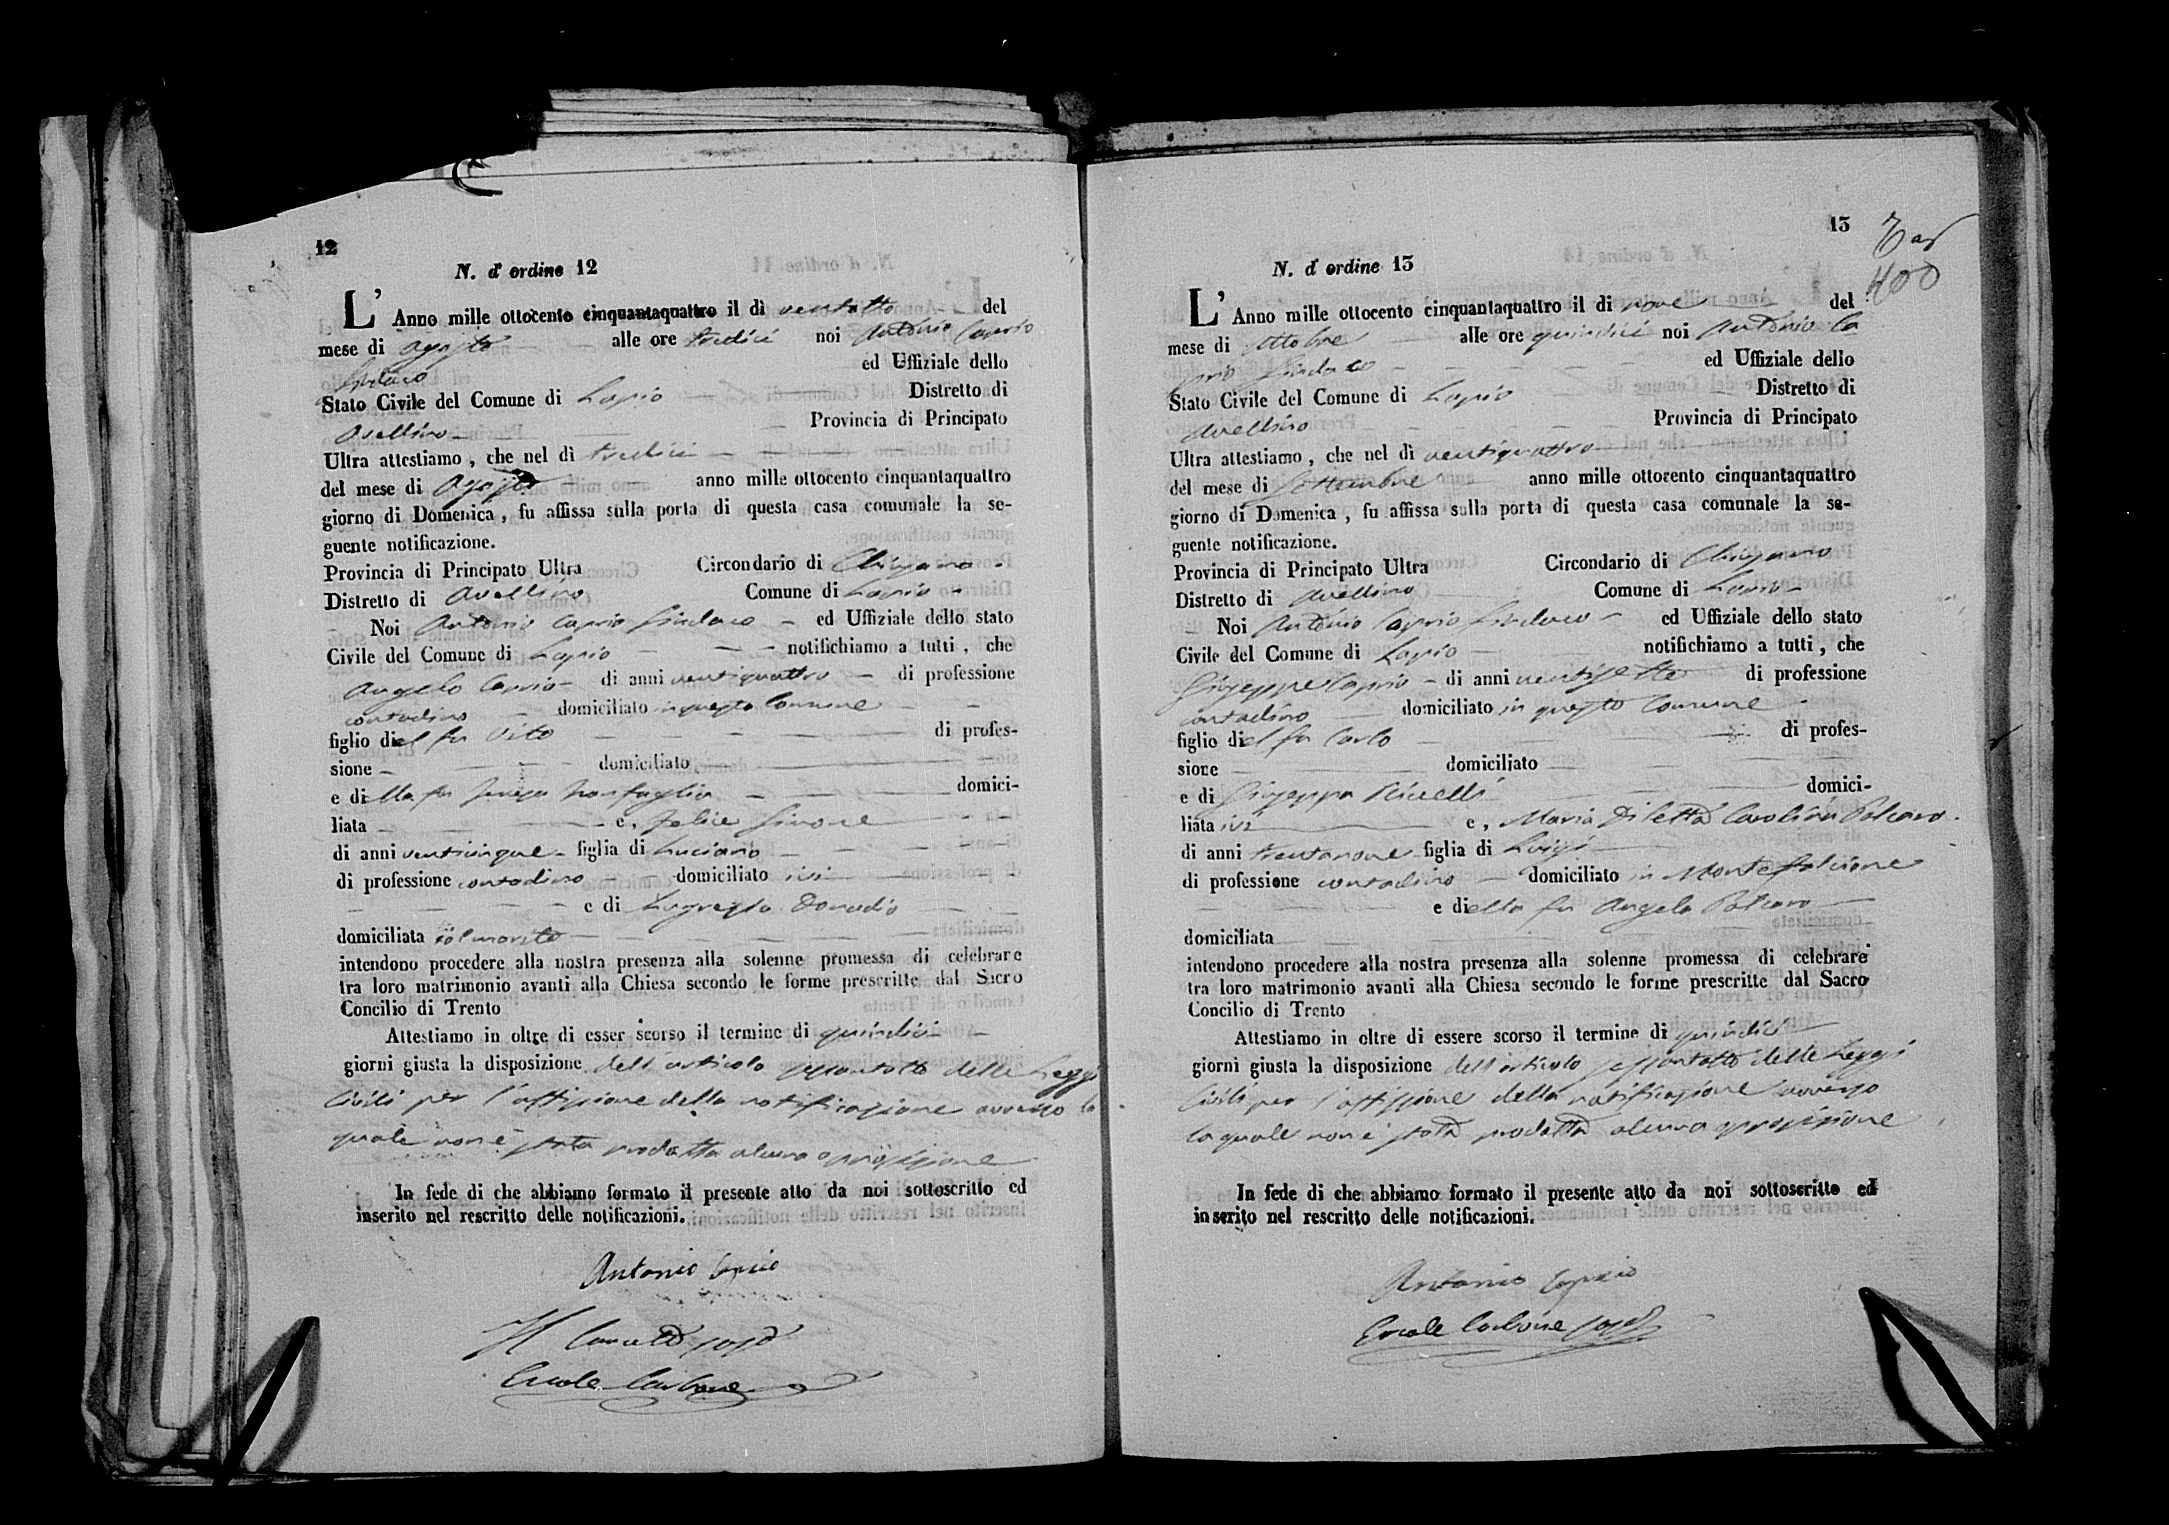 12
N. d'ordine 12
L'Anno mille ottocento cinquantaquattro il dì ventotto del
mese di Agosto alle ore tredici noi Antonio Caprio
Sindaco ed Uffiziale dello
Stato Civile del Comune di Lapio Distretto di
Avellino Provincia di Principato
Ultra attestiamo, che nel dì tredici
del mese di Agosto anno mille ottocento cinquantaquattro
giorno di Domenica, fu affissa sulla porta di questa casa comunale la se-
guente notificazione.
Provincia di Principato Ultra Circondario di Chiusano
Distretto di Avellino Comune di Lapio
Noi Antonio Caprio Sindaco ed Uffiziale dello stato
Civile del Comune di Lapio notifichiamo a tutti, che
Angelo Caprio di anni ventiquattro di professione
contadino domiciliato in questo Comune
figlio del fu Vito di profes-
sione domiciliato
e della fu domici-
liata e, Felice Simone
di anni venticinque figlia di Luciano
di professione contadino domiciliato ivi
e di Lugrezia Donadio
domiciliata col marito
intendono procedere alla nostra presenza alla solenne promessa di celebrare
tra loro matrimonio avanti alla Chiesa secondo le forme prescritte dal Sacro
Concilio di Trento
Attestiamo in oltre di esser scorso il termine di quindici
giorni giusta la disposizione dell'articolo sessantotto delle Leggi
Civili per l'affissione della notificazione avverso la
quale non è stata prodotta alcuna opposizione
In fede di che abbiamo formato il presente atto da noi sottoscritto ed
inserito nel rescritto delle notificazioni.
Antonio Caprio
Ercole Carbone
13
400
N. d'ordine 13
L'Anno mille ottocento cinquantaquattro il di nove del
mese di Ottobre alle ore quindici noi Antonio Ca
prio Sindaco ed Uffiziale dello
Stato Civile del Comune di Lapio Distretto di
Avellino Provincia di Principato
Ultra attestiamo, che nel dì ventiquattro
del mese di Settembre anno mille ottocento cinquantaquattro
giorno di Domenica, fu affissa sulla porta di questa casa comunale la se-
guente notificazione.
Provincia di Principato Ultra Circondario di Chiusano
Distretto di Avellino Comune di Lapio
Noi Antonio Caprio Sindaco ed Uffiziale dello stato
Civile del Comune di Lapio notifichiamo a tutti, che
Giuseppe Caprio di anni ventisette di professione
contadino domiciliato in questo Comune
figlio del fu Carlo di profes-
sione domiciliato
e di Giuseppa domici-
liata ivi e, Maria Diletta Carolina Polcaro
di anni trentanove figlia di Luigi
di professione contadino domiciliato in Montefalcione
e della fu Angela Polcaro
domiciliata
intendono procedere alla nostra presenza alla solenne promessa di celebrare
tra loro matrimonio avanti alla Chiesa secondo le forme prescritte dal Sacro
Concilio di Trento
Attestiamo in oltre di essere scorso il termine di quindici
giorni giusta la disposizione dell'articolo sessantotto delle Leggi
Civili per l'affissione della notificazione avverso
la quale non è stata prodotta alcuna opposizione
In fede di che abbiamo formato il presente atto da noi sottoscritto ed
inserito nel rescritto delle notificazioni.
Antonio Caprio
Ercole Carbone